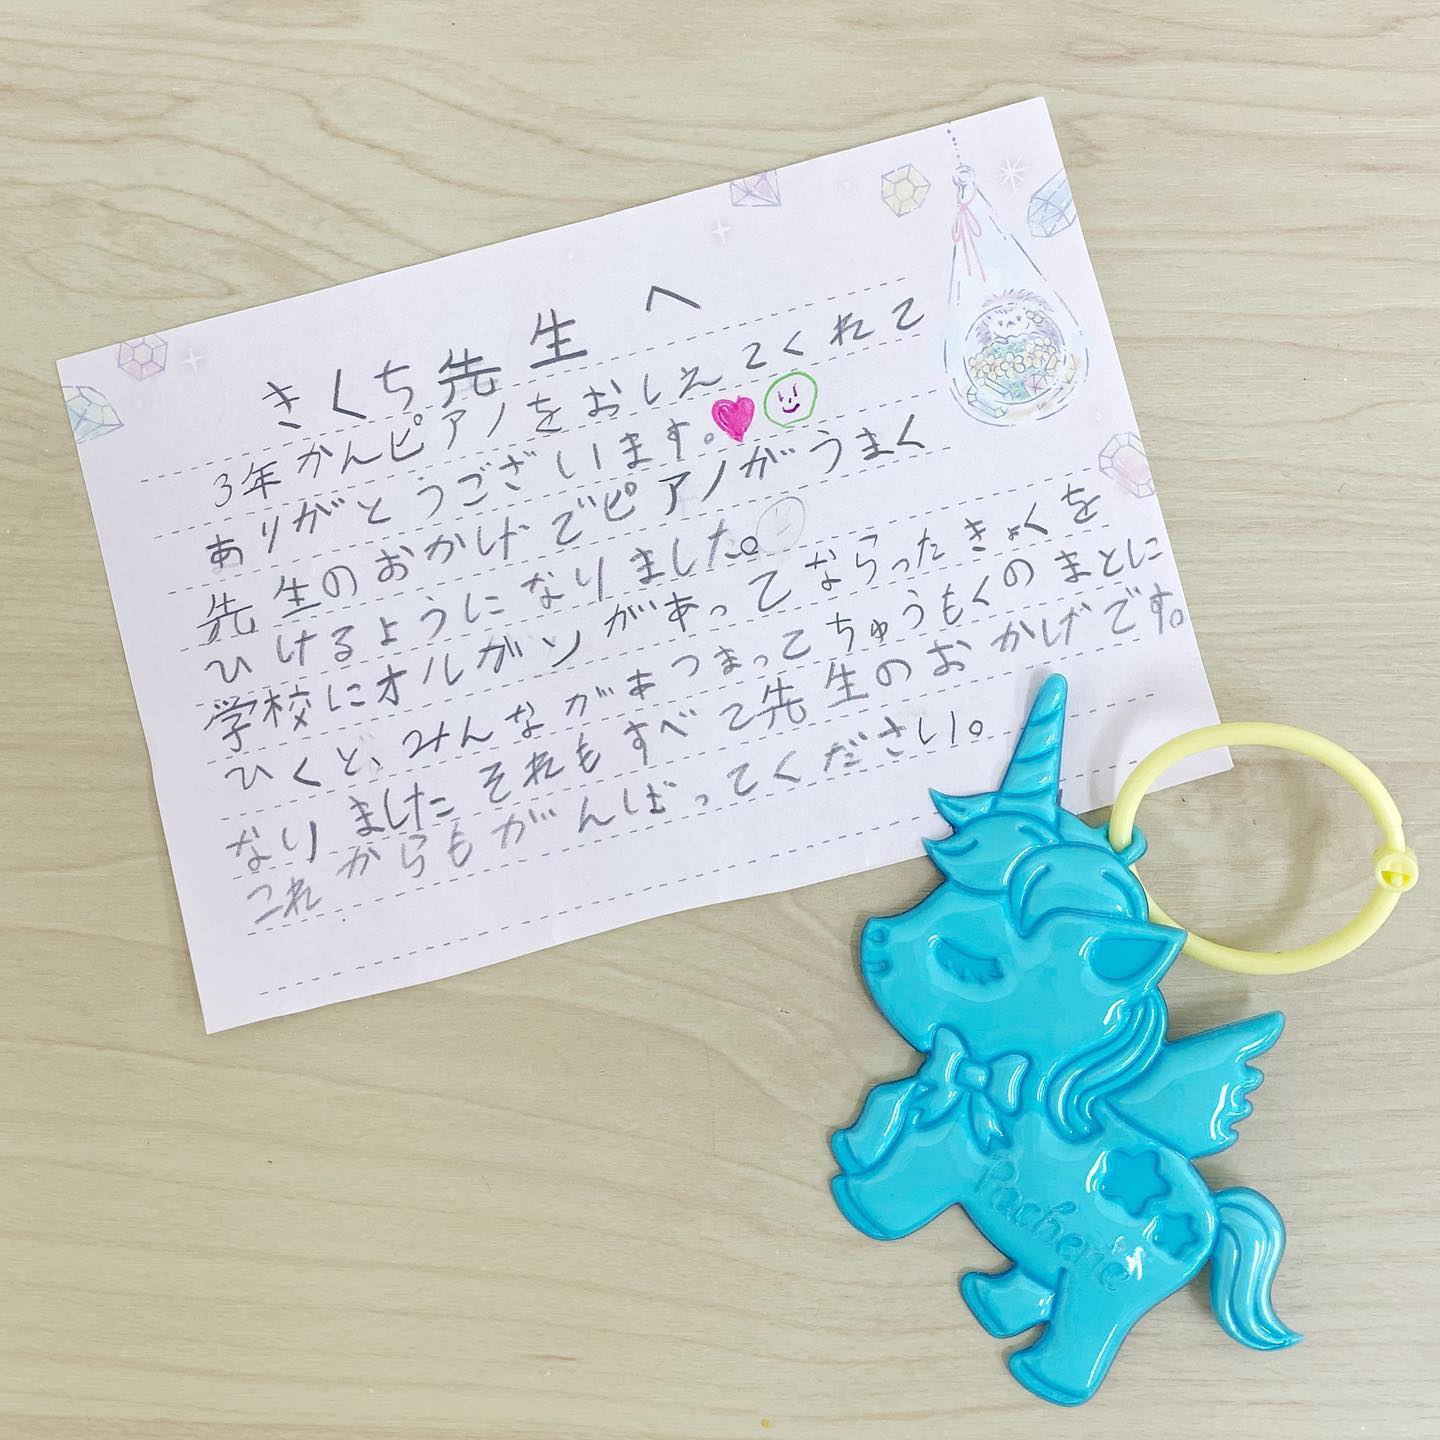 きくち先生へ
3年かんピアノをおしえてくれて
ありがとうございます。
先生のおかげでピアノがうまく
ひけるようになりました。
学校にオルガンがあってならったきょくを
ひくと、みんながあつまってちゅうもくのまとに
なりましたそれもすべて先生のおかげです。
これからもがんばってください。
Rachene